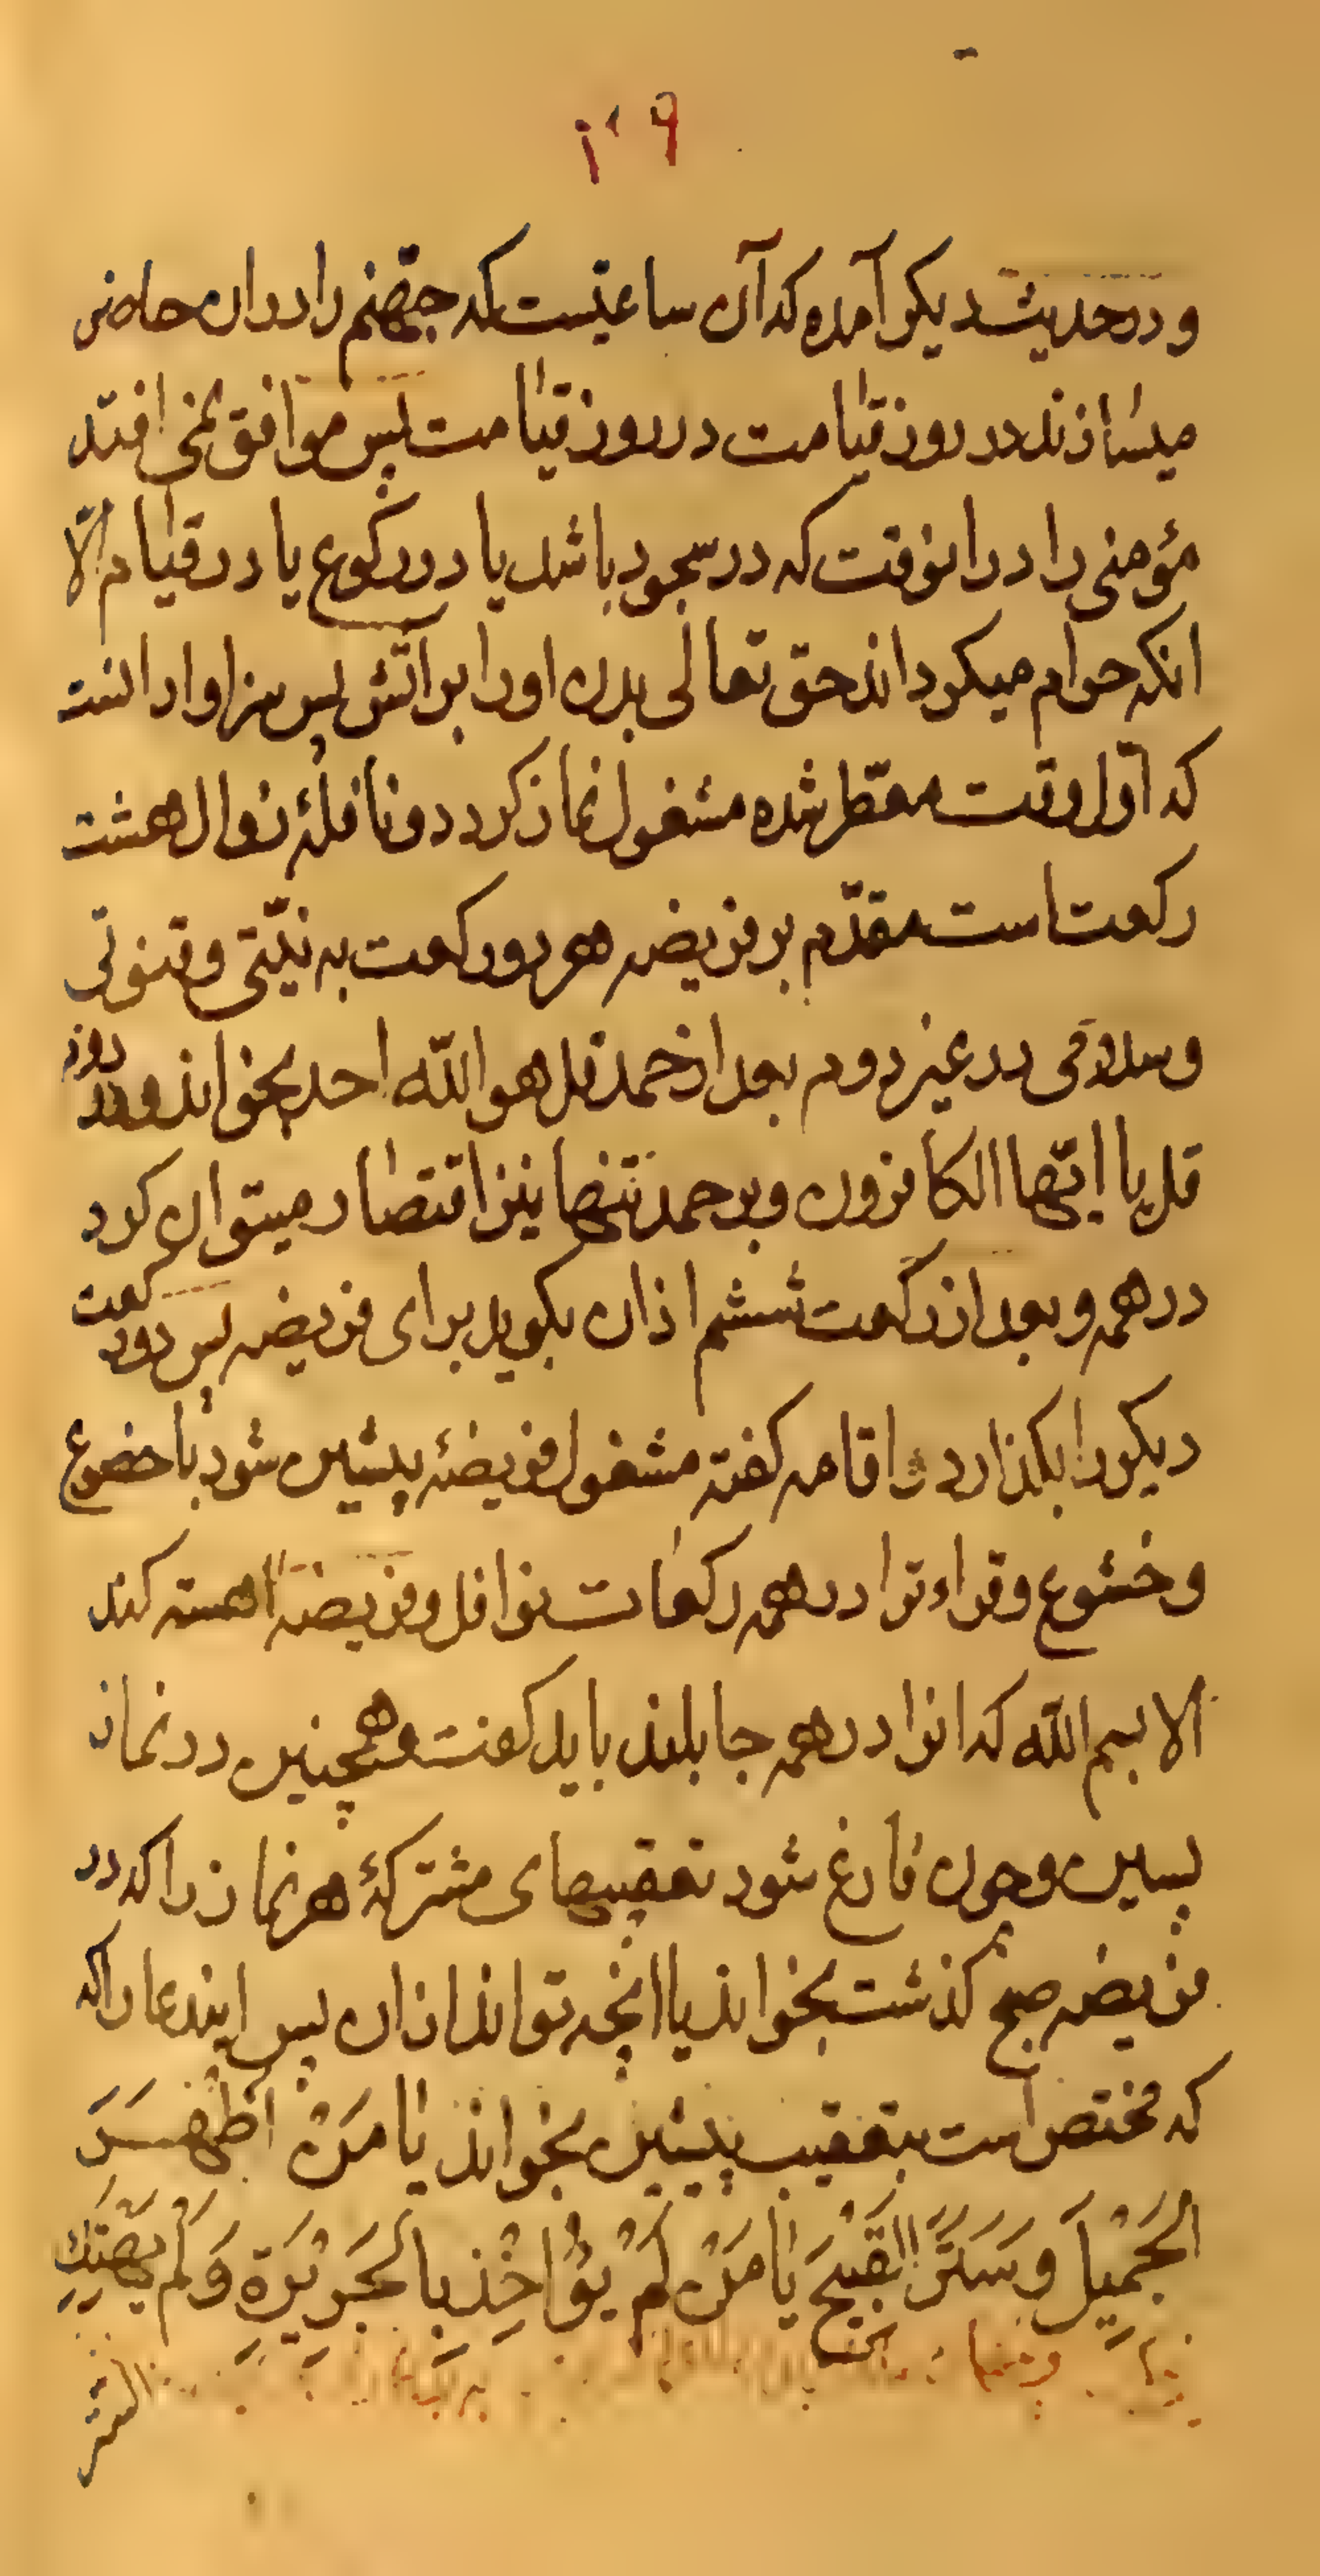 و در حدیث دیکر آمده که آن ساعتیست که جهنم را در ان حاضر
میسازند در روز قیامت در روز قیامت پس موافق نمی افتد
مؤمنی را در انوقت که در سجود باشد یا در رکوع یا در قیام الّا
انکه حرام میکرداند حق تعالی بدن او را بر اتش پس سزاوار انست
که اوّل وقت معطّر شده مشغول نماز کردد و نافلهٔ زوال هشت
رکعت است مقدّم بر فریضه هر دو رکعت به نیّتی و قنوتی
وسلامی در غیر دوم بعد از حمد قل هو اللّه احد بخواند و در دوم
قل یا ایّها الکافرون و بر حمد تنها نیز اقتصار میتوان کرد
در همه و بعد از رکعت ششم اذان بکوید برای فریضه پس دو رکعت
دیکر را بکذارد و اقامه کفته مشغول فریضهٔ پیشین شود با خضوع
و خشوع و قراءت را در همه رکعات نوافل و فریضه اهسته کند
الا بسم اللّه که انرا در همه جا بلند باید کفت و همچنین در نماز
پسین و چون فارغ شود تعقیبهای مشترکهٔ هر نماز را که در
فریضه صبح کذشت بخواند یا انچه تواند از ان پس ایندعا را که
که مختص است بتعقیب پیشین بخواند یا مَنْ اَظْهَرَ
الْجَمیلَ وَ سَتَرَ الْقَبیحَ یا مَنْ لَمْ یُؤاخِذ بِالْجَریرَةِ وَ لَمْ یَهْتِكِ
الستر